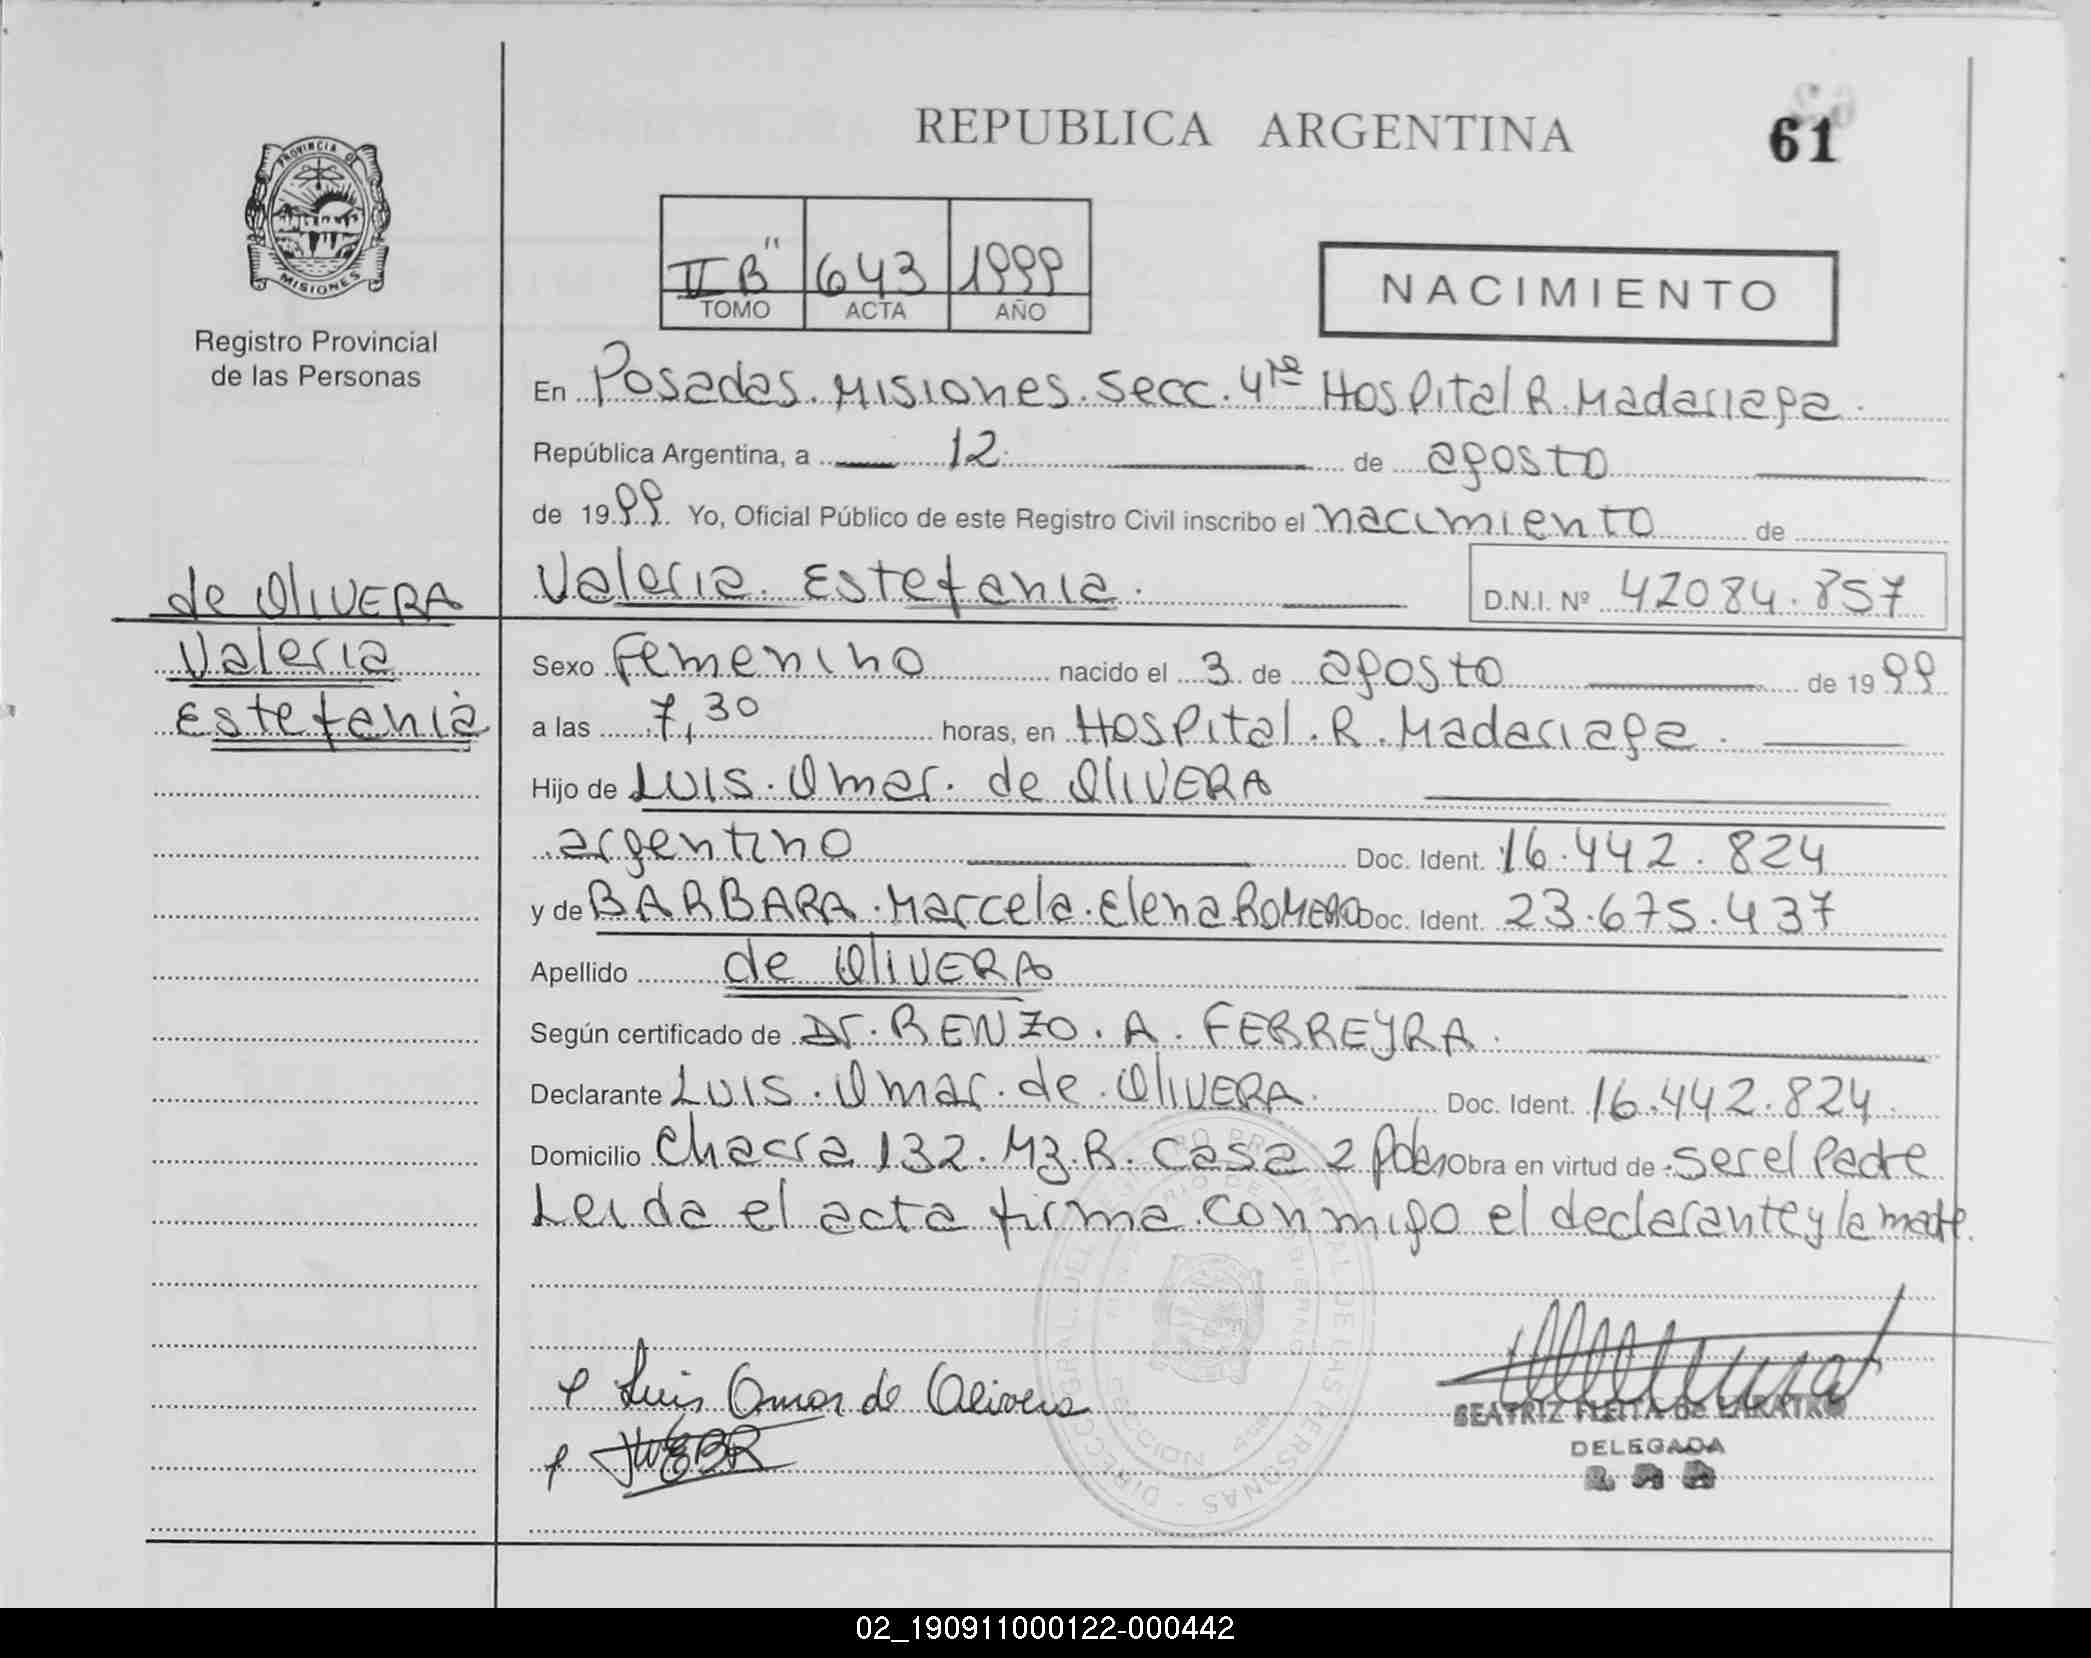 REPUBLICA ARGENTINA
61
PROVINCIA DE
MISIONES
Registro Provincial
de las Personas
II B" 643 1999
TOMO ACTA AÑO
NACIMIENTO
En Posadas. Misiones. Secc. 4ta Hospital R. Madariaga.
República Argentina, a 12 de agosto
de 1999. Yo, Oficial Público de este Registro Civil inscribo el nacimiento de
Valeria Estefania. D.N.I. Nº 42084.857
de OliVERA
Valeria
Estefania
Sexo Femenino nacido el 3 de agosto de 1999
a las 7,30 horas, en Hospital. R. Madariaga.
Hijo de Luis. Omar. de OliVERA
argentino Doc. Ident. 16.442.824
y de BARBARA. Marcela. Elena ROMERO Doc. Ident. 23.675.437
Apellido de OliVERA
Según certificado de Dr. RENZO. A. FERREYRA.
Declarante Luis. Omar. de. OliVERA. Doc. Ident. 16.442.824.
Domicilio Chacra 132. Mz. R. Casa 2 Obra en virtud de ser el Padre
Leida el acta firma conmigo el declarante y la madre.
Luis Omar de Olivera
BEATRIZ FLEITA de
DELEGADA
02_190911000122-000442